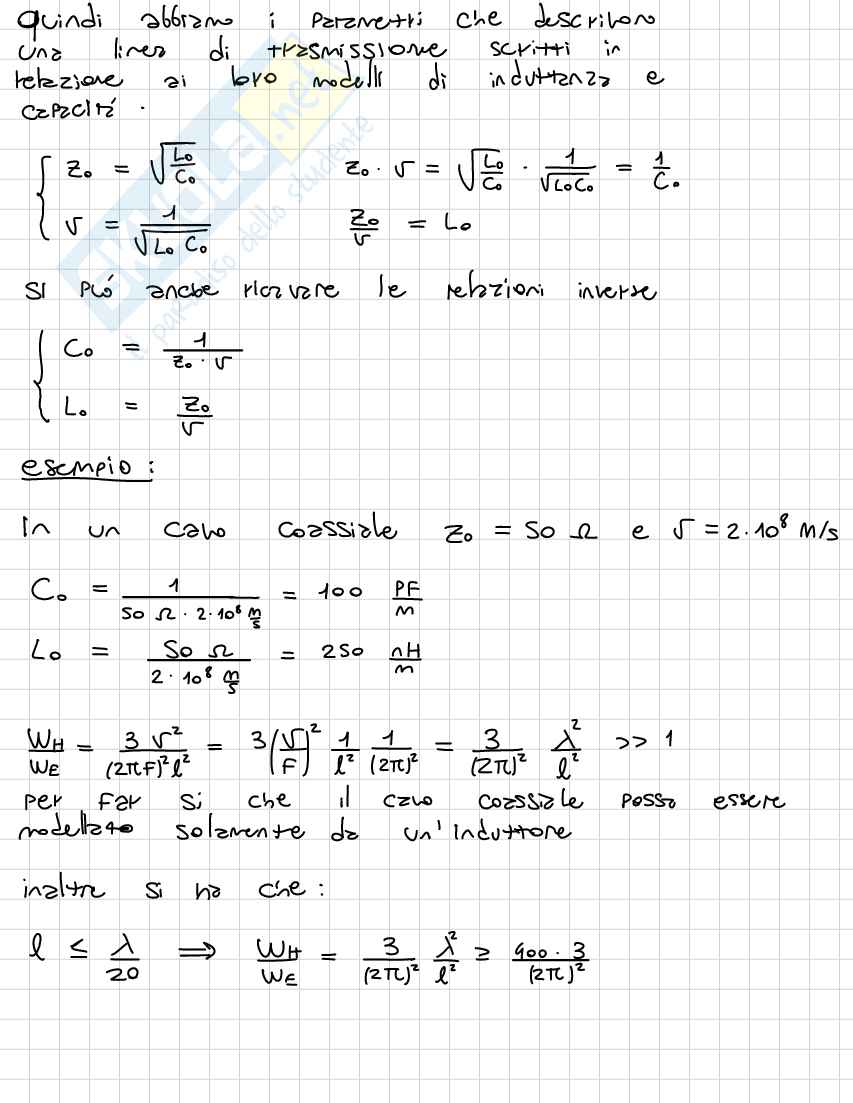 quindi abbiamo i parametri che descrivono
una linea di trasmissione scritti in
relazione ai loro modelli di induttanza e
capacitá.
Z₀ = √(L₀/C₀) Z₀ · v = √(L₀/C₀) · 1/√(L₀C₀) = 1/C₀
v = 1/√(L₀ C₀) Z₀/v = L₀
si può anche ricavare le relazioni inverse
C₀ = 1/(Z₀ · v)
L₀ = Z₀/v
esempio:
In un cavo coassiale Z₀ = 50 Ω e v = 2·10⁸ m/s
C₀ = 1/(50 Ω · 2·10⁸ m/s) = 100 pF/m
L₀ = 50 Ω/(2·10⁸ m/s) = 250 nH/m
W_H/W_E = 3v²/((2πf)²l²) = 3(v/f)² 1/l² 1/(2π)² = 3/(2π)² λ²/l² >> 1
per far si che il cavo coassiale possa essere
modellato solamente da un'induttore
inoltre si ha che:
l ≤ λ/20 ⟹ W_H/W_E = 3/(2π)² λ²/l² ≥ 400·3/(2π)²
SKUOLA.net
il paradiso dello studente